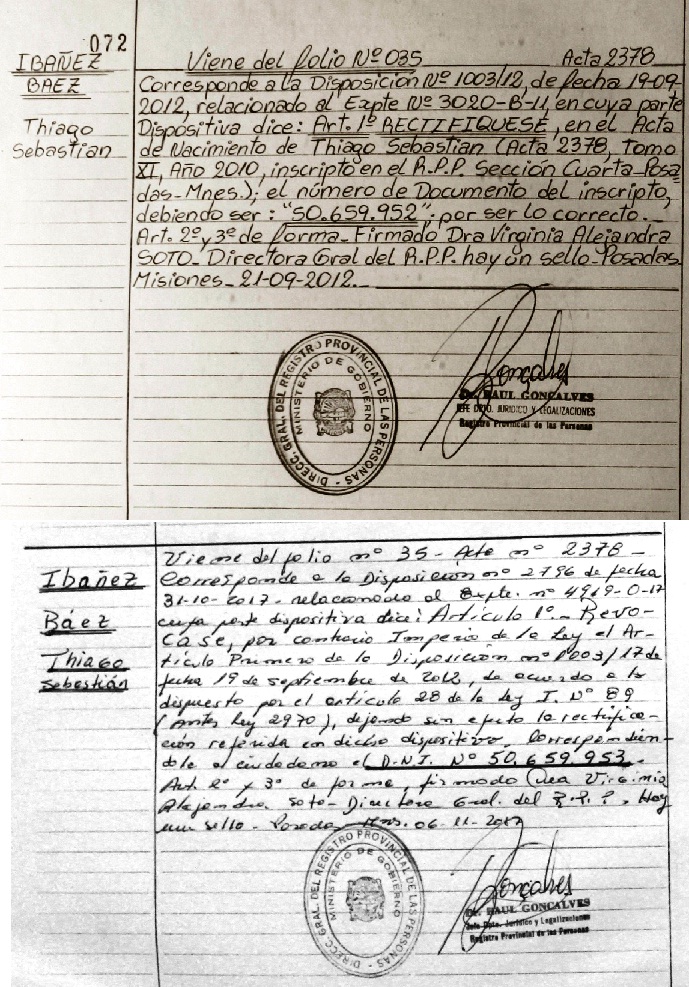 072
IBAÑEZ
BAEZ
Thiago
Sebastian
Viene del folio Nº 035 Acta 2378
Corresponde a la Disposición Nº 1003/12, de fecha 19-09-
2012, relacionado al Expte Nº 3020-B-11, en cuya parte
Dispositiva dice: Art. 1º RECTIFIQUESE, en el Acta
de Nacimiento de Thiago Sebastian (Acta 2378, Tomo
XI, Año 2010, inscripto en el R.P.P. Sección Cuarta-Posa
das-Mnes.); el número de Documento del inscripto,
debiendo ser: "50.659.952"; por ser lo correcto.-
Art. 2º y 3º de forma-Firmado Dra Virginia Alejandra
SOTO-Directora Gral del R.P.P. hay un sello-Posadas
Misiones-21-09-2012.
DIRECC. GRAL. DEL REGISTRO PROVINCIAL DE LAS PERSONAS -
MINISTERIO DE GOBIERNO
Gonçalves
Dr. RAUL GONCALVES
JEFE DPTO. JURIDICO Y LEGALIZACIONES
Registro Provincial de las Personas
Ibañez
Báez
Thiago
Sebastián
Viene del folio nº 35 - Acta nº 2378 -
Corresponde a la Disposición nº 2796 de fecha
31-10-2017 - relacionado al Expte. nº 4919-O-17
cuya parte dispositiva dice: Artículo 1º.- Revo-
case, por contrario Imperio de la Ley el Ar-
tículo Primero de la Disposición nº 1003/17 de
fecha 19 de septiembre de 2012, de acuerdo a lo
dispuesto por el artículo 28 de la Ley I. Nº 89
(Antes Ley 2970), dejando sin efecto la rectifica-
ción referida en dicho dispositivo, Correspondien-
dole al ciudadano el D.N.I. Nº 50.659.953.
Art. 2º y 3º de forma, firmado Dra Virginia
Alejandra Soto-Directora Gral. del R.P.P., Hay
un sello - Posadas Mns. 06-11-2017
DIRECC. GRAL. DEL REGISTRO PROVINCIAL DE LAS PERSONAS -
MINISTERIO DE GOBIERNO
Gonçalves
Dr. RAUL GONCALVES
Jefe Dpto. Jurídico y Legalizaciones
Registro Provincial de las Personas